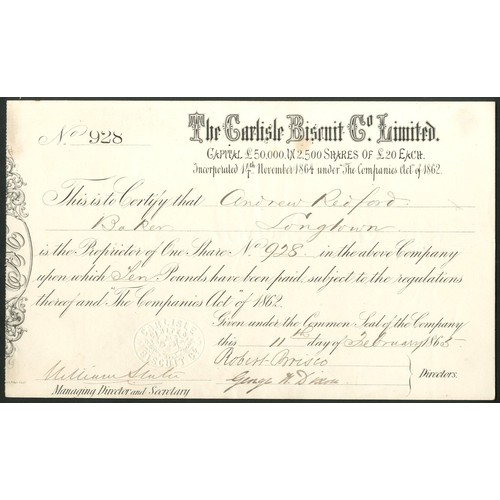 No. 928
The Carlisle Biscuit Co. Limited.
CAPITAL £50,000, IN 2,500 SHARES OF £20 EACH.
Incorporated 14th November 1864 under "The Companies Act" of 1862.
This is to Certify that Andrew Redford
Baker Longtown
is the Proprietor of One Share No. 928 in the above Company
upon which Ten Pounds have been paid, subject to the regulations
thereof and "The Companies Act" of 1862.
Given under the Common Seal of the Company
this 11th day of February 1865
CARLISLE
BISCUIT CO
Robert
George H. Dixon
Directors.
William Slater
Managing Director and Secretary